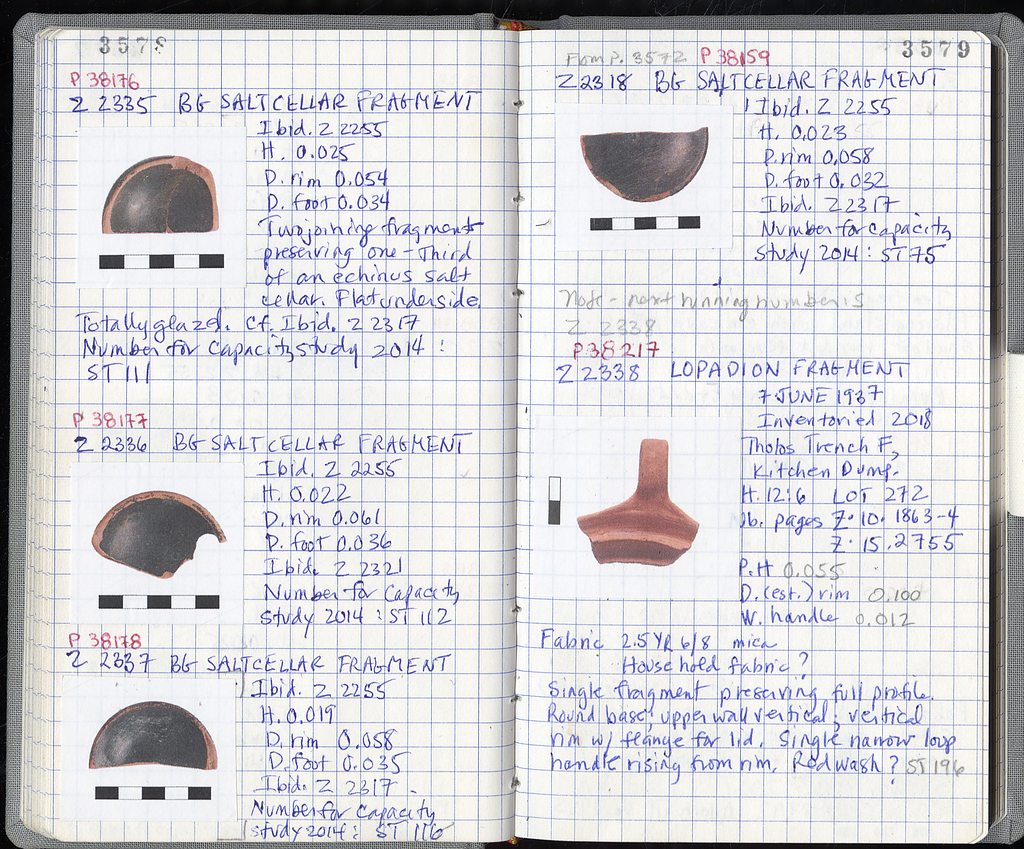 3578
P 38176
Z 2335 BG SALTCELLAR FRAGMENT
Ibid. Z 2255
H. 0.025
D. rim 0.054
D. foot 0.034
Two joining fragments
preserving one-third
of an echinus salt
cellar. Flat underside.
Totally glazed. Cf. Ibid. Z 2317
Number for Capacity study 2014 :
ST 111
P 38177
Z 2336 BG SALTCELLAR FRAGMENT
Ibid. Z 2255
H. 0.022
D. rim 0.061
D. foot 0.036
Ibid. Z 2321
Number for Capacity
study 2014 : ST 112
P 38178
Z 2337 BG SALTCELLAR FRAGMENT
Ibid. Z 2255
H. 0.019
D. rim 0.058
D. foot 0.035
Ibid. Z 2317.
Number for Capacity
study 2014: ST 116
3579
From P. 3572 P 38159
Z 2318 BG SALTCELLAR FRAGMENT
Ibid. Z 2255
H. 0.023
D. rim 0.058
D. foot 0.032
Ibid. Z 2317
Number for Capacity
study 2014 : ST 75
Note - next running number is
Z 2338
P 38217
Z 2338 LOPADION FRAGMENT
7 JUNE 1937
Inventoried 2018
Tholos Trench F,
Kitchen Dump.
H. 12:6 LOT 272
Nb. pages Z.10.1863-4
Z.15.2755
P.H 0.055
D. (est.) rim 0.100
W. handle 0.012
Fabric 2.5 YR 6/8 mica
Household fabric ?
Single fragment preserving full profile.
Round base; upper wall vertical; vertical
rim w/ flange for lid. Single narrow loop
handle rising from rim. Red wash ? ST 196